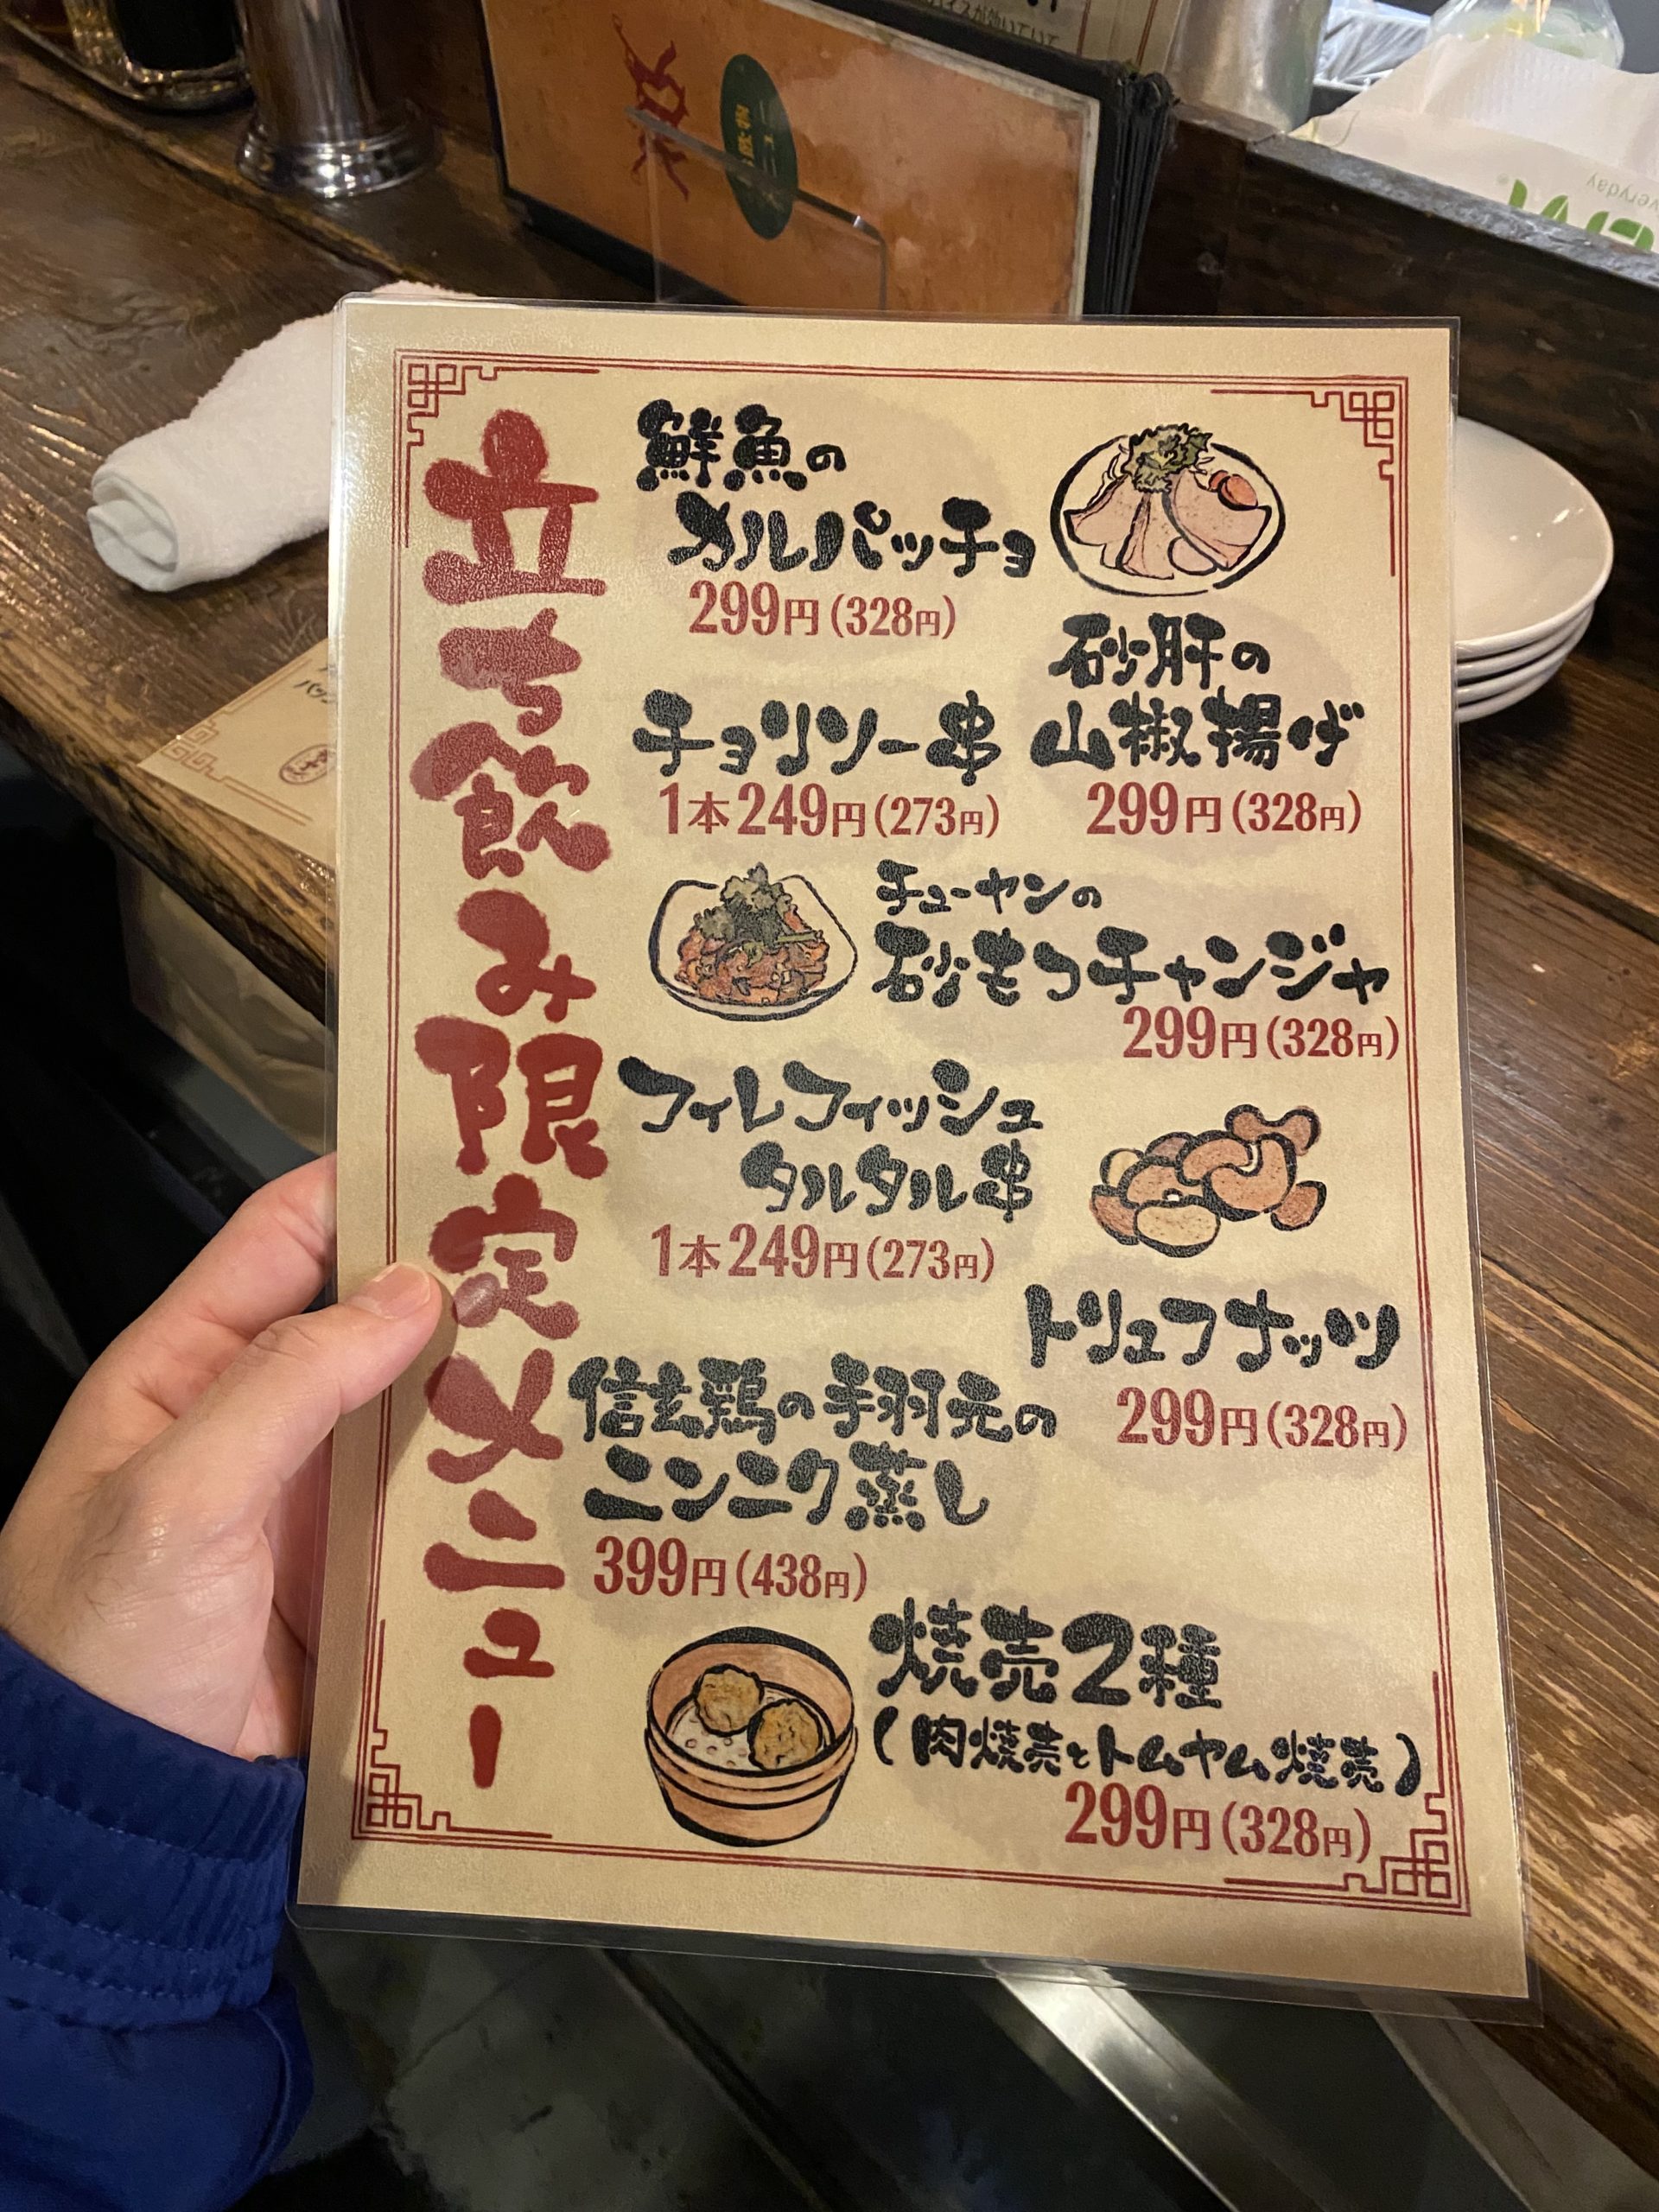 立ち飲み限定メニュー
鮮魚の
カルパッチョ
299円(328円)
砂肝の
山椒揚げ
299円(328円)
チョリソー串
1本249円(273円)
チューヤンの
砂もつチャンジャ
299円(328円)
フィレフィッシュ
タルタル串
1本249円(273円)
トリュフナッツ
299円(328円)
信玄鶏の手羽元の
ニンニク蒸し
399円(438円)
焼売2種
(肉焼売とトムヤム焼売)
299円(328円)
everyday